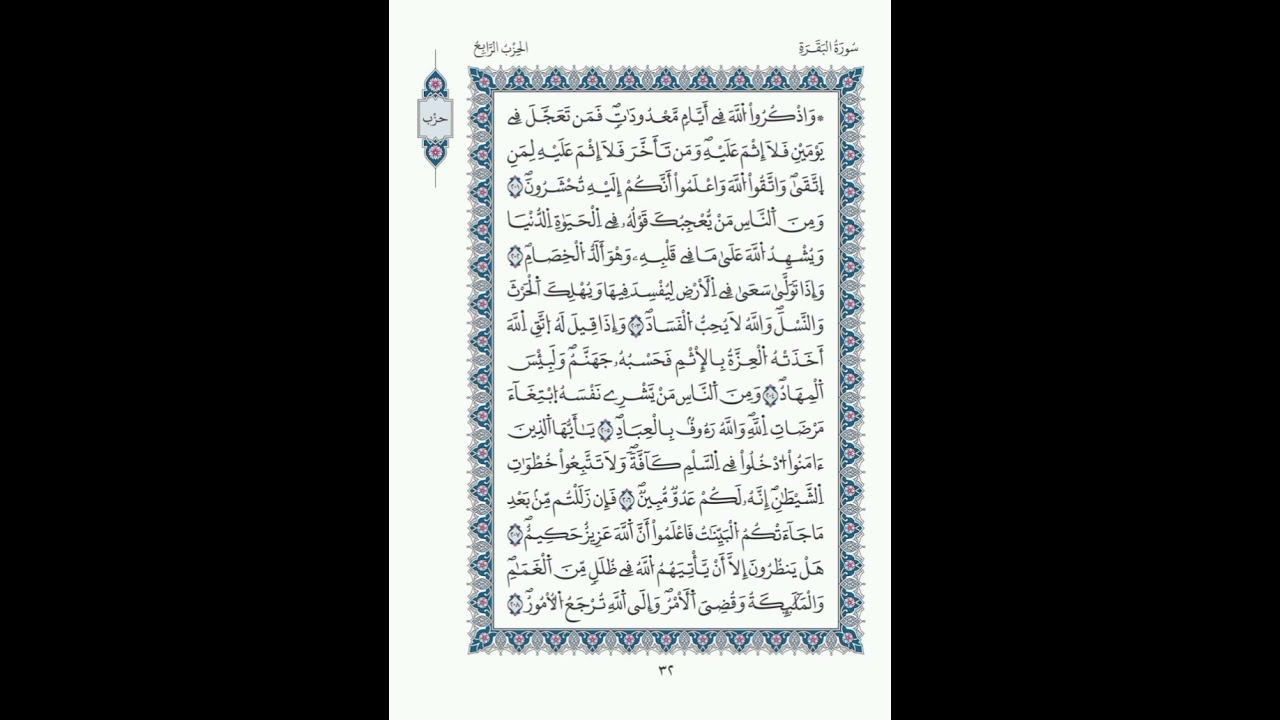 سُورَةُ البَقَرَةِ
الحِزْبُ الرَّابِعُ
حزْب
۞وَاذْكُرُواْ اللَّهَ فِے أَيَّامٖ مَّعْدُودَٰتٖۖ فَمَن تَعَجَّلَ فِے
يَوْمَيْنِ فَلَآ إِثْمَ عَلَيْهِۖ وَمَن تَأَخَّرَ فَلَآ إِثْمَ عَلَيْهِ لِمَنِ
اِتَّقَىٰۖ وَاتَّقُواْ اللَّهَ وَاعْلَمُواْ أَنَّكُمْ إِلَيْهِ تُحْشَرُونَۖ ٢٠١
وَمِنَ اَلنَّاسِ مَنْ يُّعْجِبُكَ قَوْلُهُۥ فِے اِلْحَيَوٰةِ اِلدُّنْيَا
وَيُشْهِدُ اللَّهَ عَلَىٰ مَا فِے قَلْبِهِۦ وَهْوَ أَلَدُّ اُلْخِصَامِۖ ٢٠٢
وَإِذَا تَوَلَّىٰ سَعَىٰ فِے اِلْأَرْضِ لِيُفْسِدَ فِيهَا وَيُهْلِكَ اَلْحَرْثَ
وَالنَّسْلَۖ وَاللَّهُ لَا يُحِبُّ اُلْفَسَادَۖ ٢٠٣ وَإِذَا قِيلَ لَهُ اِتَّقِ اِللَّهَ
أَخَذَتْهُ اُلْعِزَّةُ بِالْإِثْمِ فَحَسْبُهُۥ جَهَنَّمُۖ وَلَبِئْسَ
اَلْمِهَادُۖ ٢٠٤ وَمِنَ اَلنَّاسِ مَنْ يَّشْرِے نَفْسَهُ اُبْتِغَآءَ
مَرْضَاتِ اِللَّهِۖ وَاللَّهُ رَءُوفُۢ بِالْعِبَادِۖ ٢٠٥ يَٰٓأَيُّهَا اَلذِينَ
ءَامَنُواْ اُدْخُلُواْ فِے اِلسَّلْمِ كَآفَّةٗۖ وَلَا تَتَّبِعُواْ خُطْوَٰتِ
اِلشَّيْطَٰنِۖ إِنَّهُۥ لَكُمْ عَدُوّٞ مُّبِينٞۖ ٢٠٦ فَإِن زَلَلْتُم مِّنۢ بَعْدِ
مَا جَآءَتْكُمُ اُلْبَيِّنَٰتُ فَاعْلَمُواْ أَنَّ اَللَّهَ عَزِيزٌ حَكِيمٌۖ ٢٠٧
هَلْ يَنظُرُونَ إِلَّآ أَنْ يَّأْتِيَهُمُ اُللَّهُ فِے ظُلَلٖ مِّنَ اَلْغَمَٰمِۖ
وَالْمَلَٰٓئِكَةُ وَقُضِيَ اَلْأَمْرُۖ وَإِلَى اَللَّهِ تُرْجَعُ اُلْأُمُورُۖ ٢٠٨
٣٢